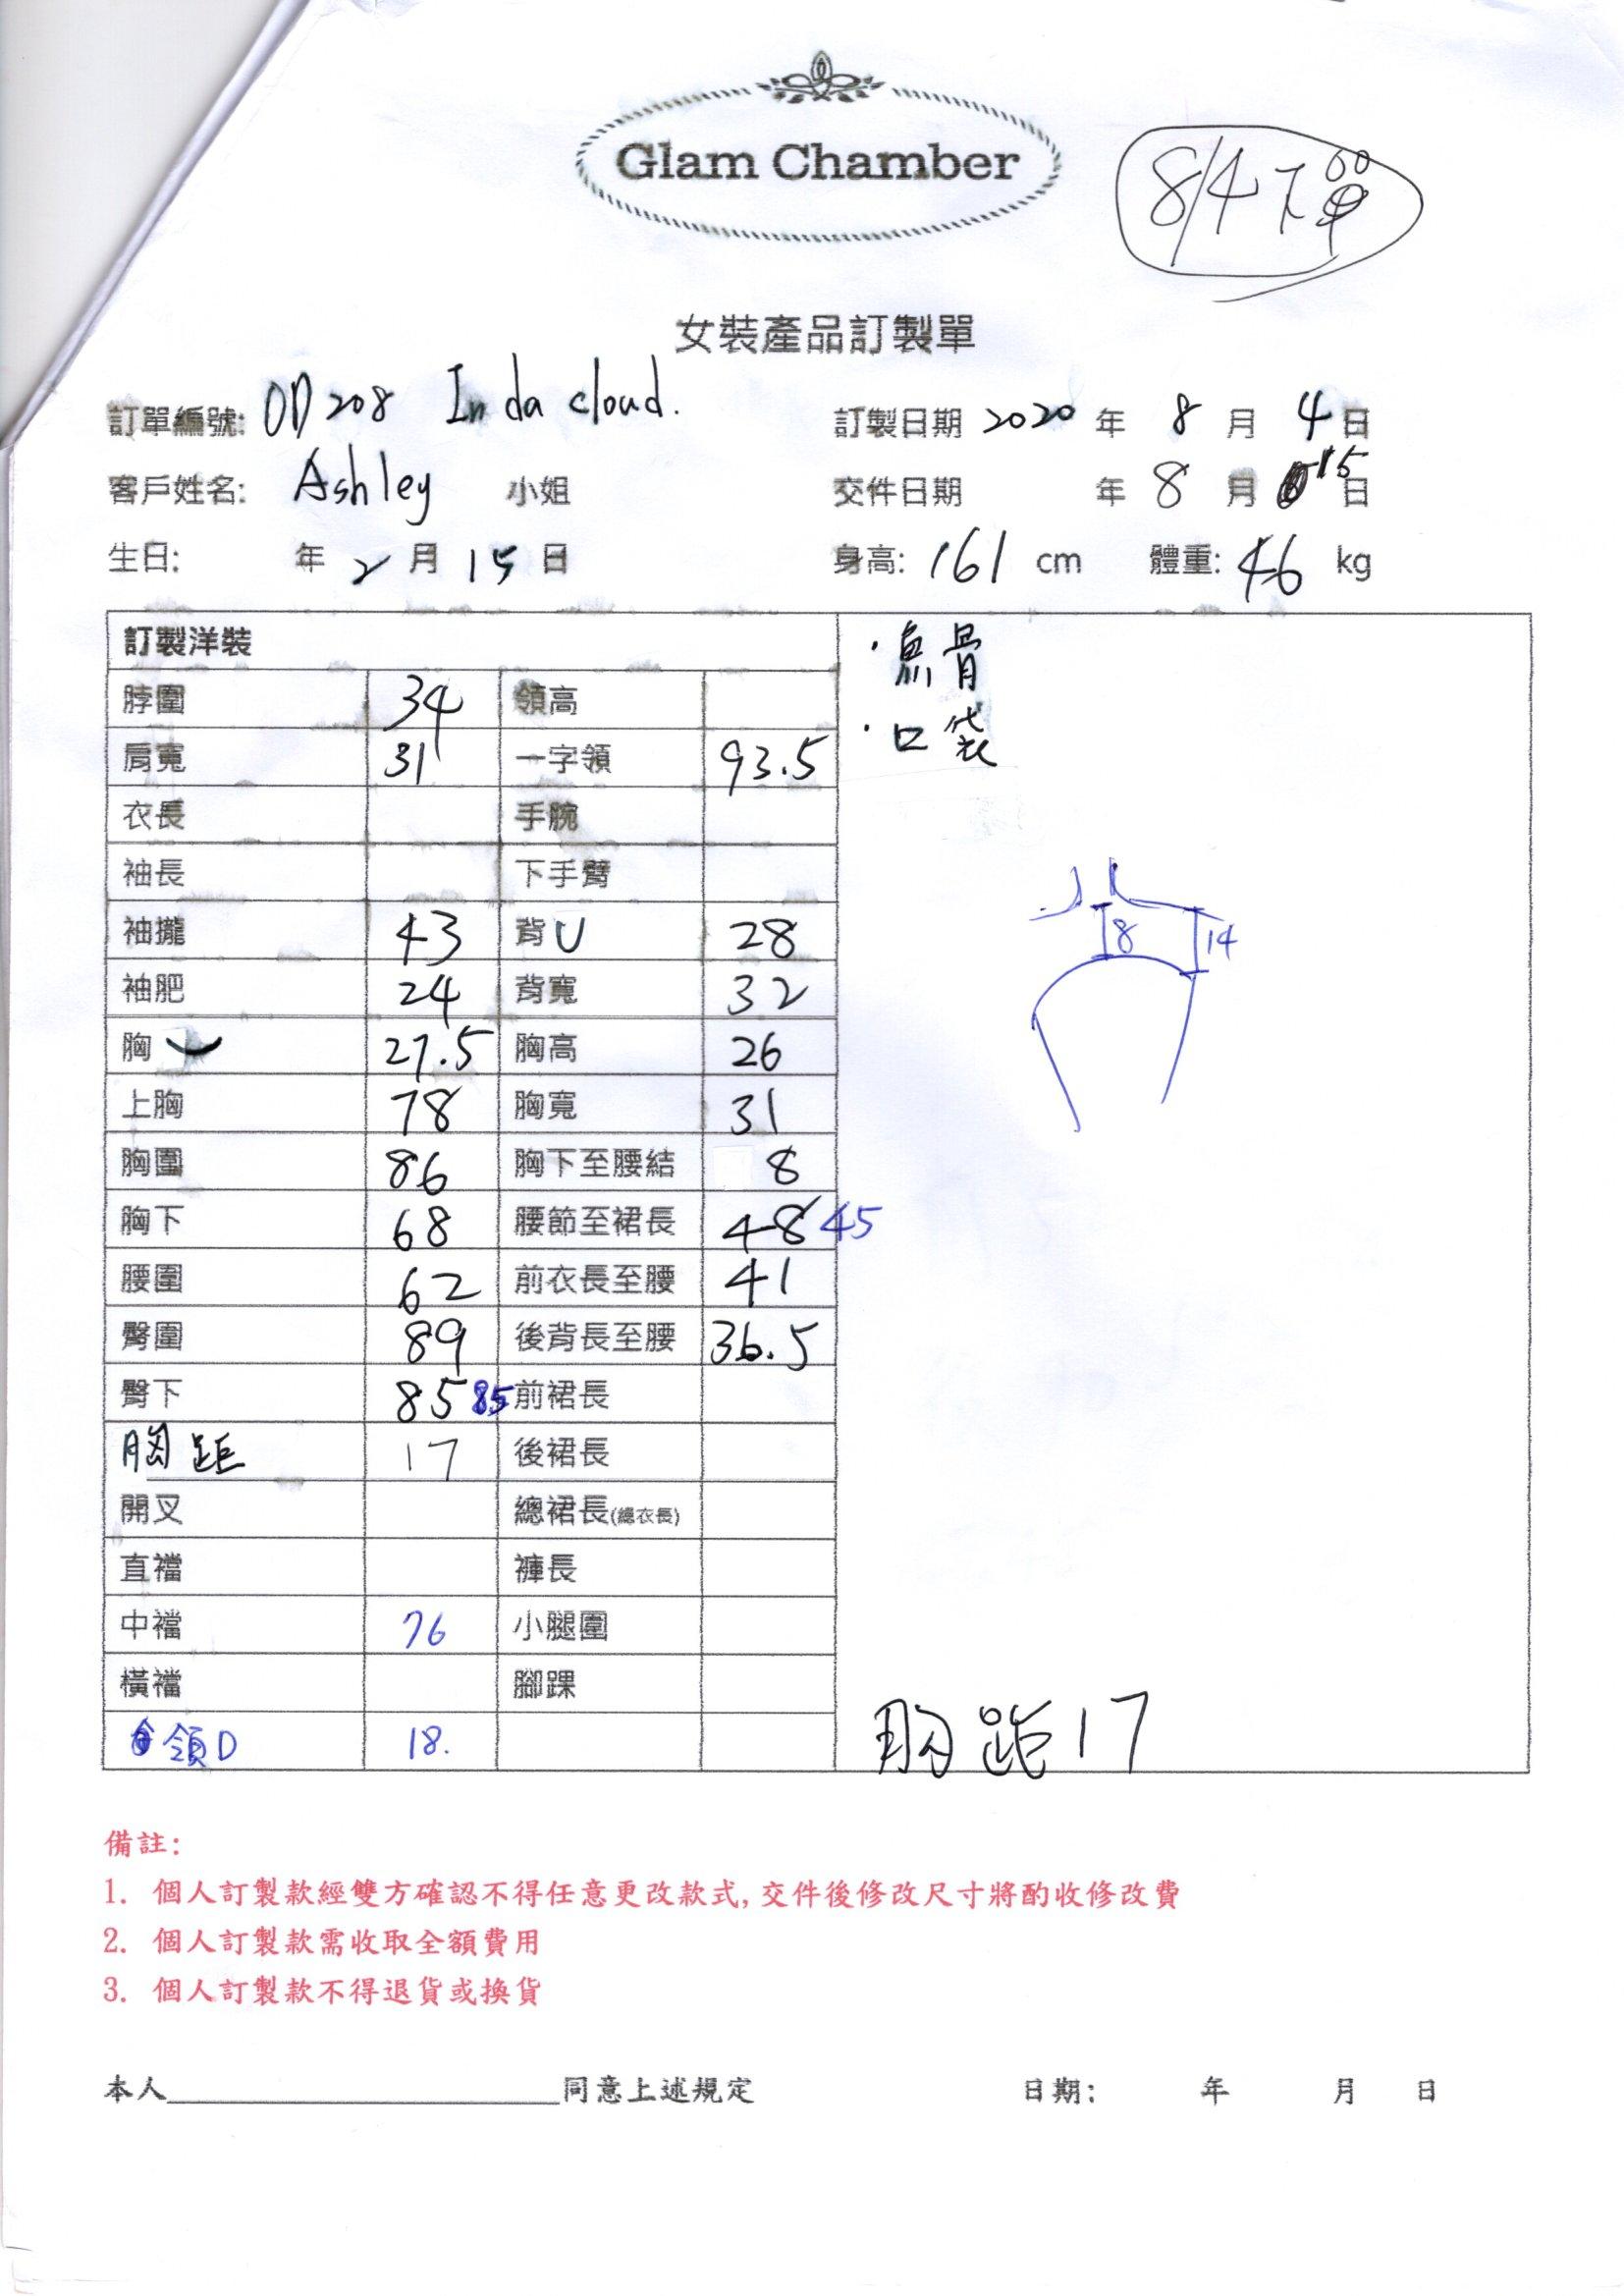 Glam Chamber
8/4下單
女裝產品訂製單
訂單編號: OD208 In da cloud. 訂製日期 2020 年 8 月 4 日
客戶姓名: Ashley 小姐 交件日期 年 8 月 15 日
生日: 年 2 月 15 日 身高: 161 cm 體重: 46 kg
訂製洋裝
脖圍 34 領高
肩寬 31 一字領 93.5
衣長 手腕
袖長 下手臂
袖攏 43 背U 28
袖肥 24 背寬 32
胸 27.5 胸高 26
上胸 78 胸寬 31
胸圍 86 胸下至腰結 8
胸下 68 腰節至裙長 48 45
腰圍 62 前衣長至腰 41
臀圍 89 後背長至腰 36.5
臀下 85 85 前裙長
胸距 17 後裙長
開叉 總裙長(總衣長)
直襠 褲長
中襠 76 小腿圍
橫襠 腳踝
領D 18.
·魚骨
·口袋
8 14
胸距17
備註:
1. 個人訂製款經雙方確認不得任意更改款式, 交件後修改尺寸將酌收修改費
2. 個人訂製款需收取全額費用
3. 個人訂製款不得退貨或換貨
本人____________________同意上述規定 日期: 年 月 日